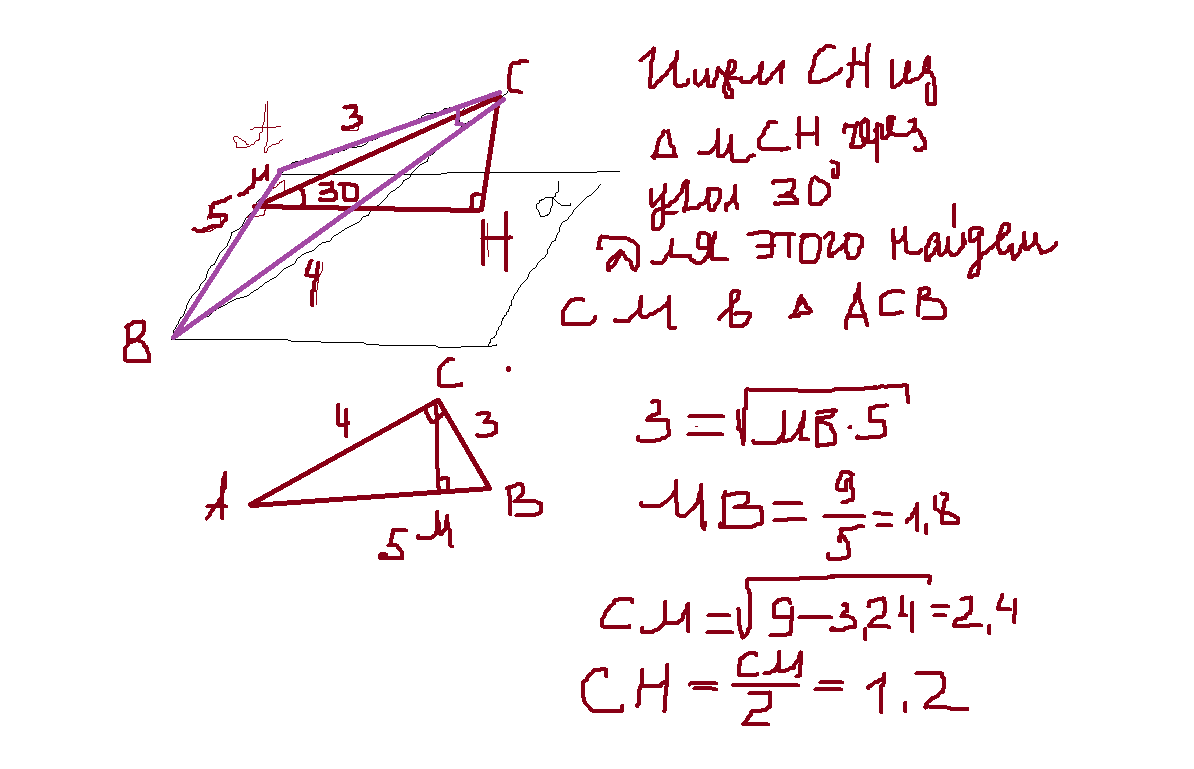 Ищем CH из
Δ MCH через
угол 30°
Для этого найдем
CM в Δ ACB
C
3
A
M
30
5
α
H
4
B
C
4
3
A
B
M
5
3 = √MB·5
MB = 9/5 = 1,8
CM = √9-3,24 = 2,4
CH = CM/2 = 1.2